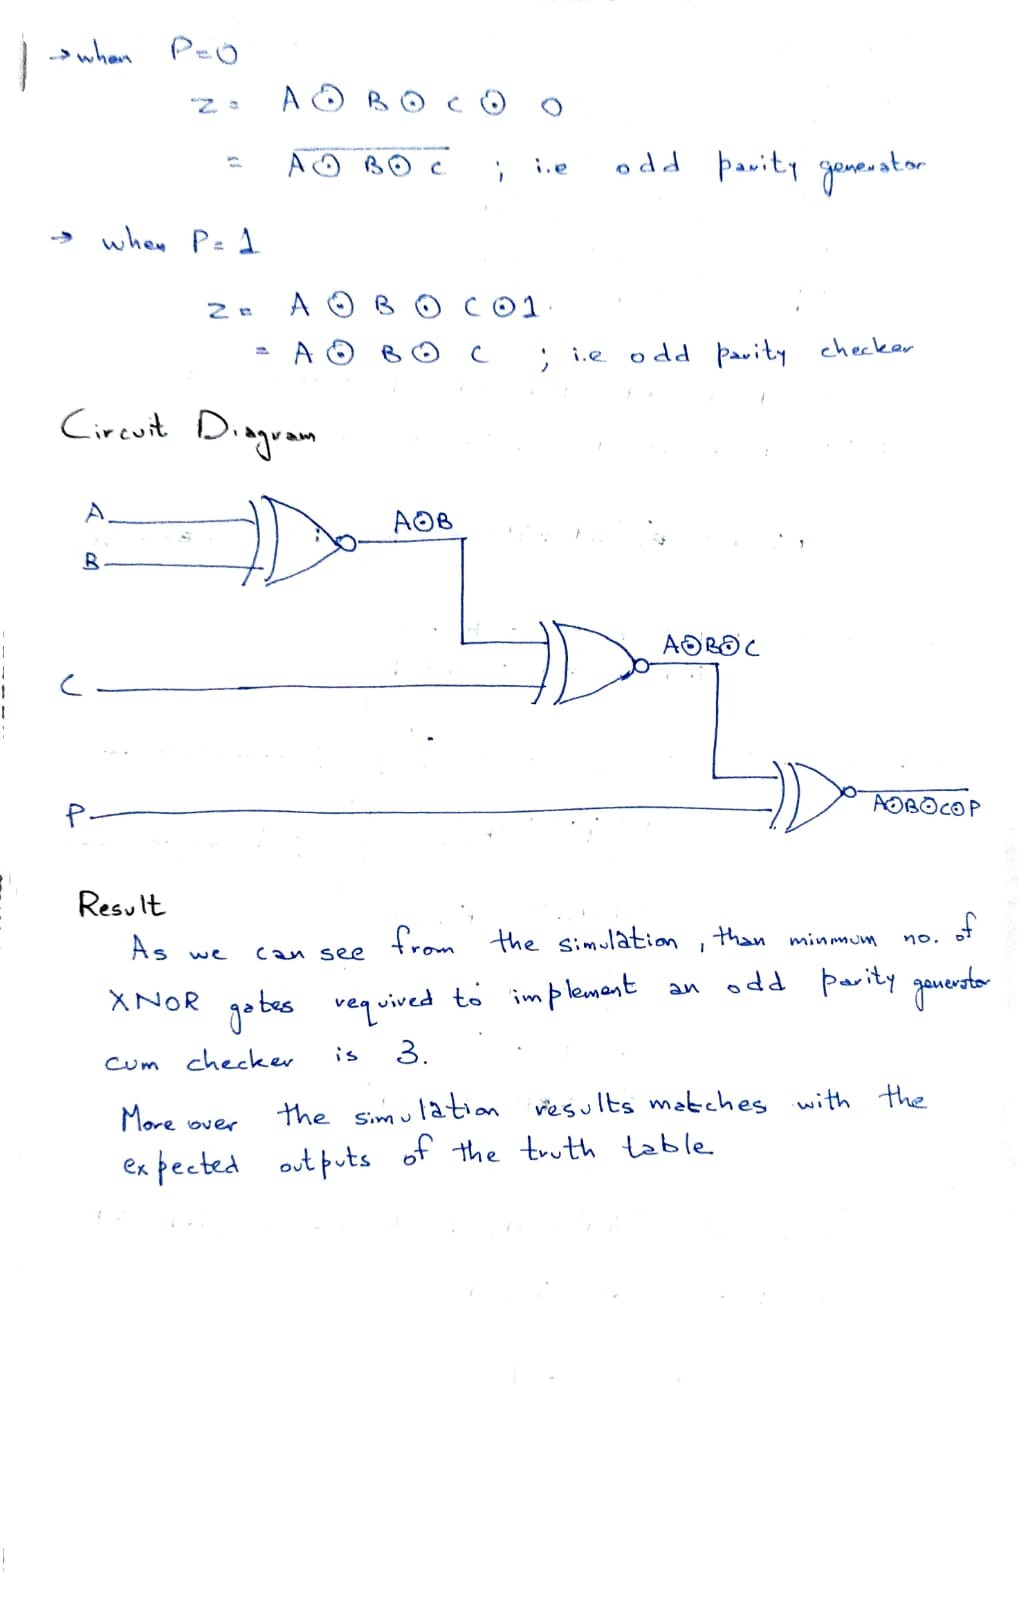 → when P=0
Z = A ⊙ B ⊙ C ⊙ 0
= A̅ ⊙̅ B̅ ⊙̅ C̅ ; i.e odd parity generator
→ when P=1
Z = A ⊙ B ⊙ C ⊙ 1.
= A ⊙ B ⊙ C ; i.e odd parity checker
Circuit Diagram
A
A⊙B
B
A⊙B⊙C
C
P
A⊙B⊙C⊙P
Result
As we can see from the simulation, than minmum no. of
XNOR gates required to implement an odd parity generator
cum checker is 3.
More over the simulation results matches with the
expected outputs of the truth table